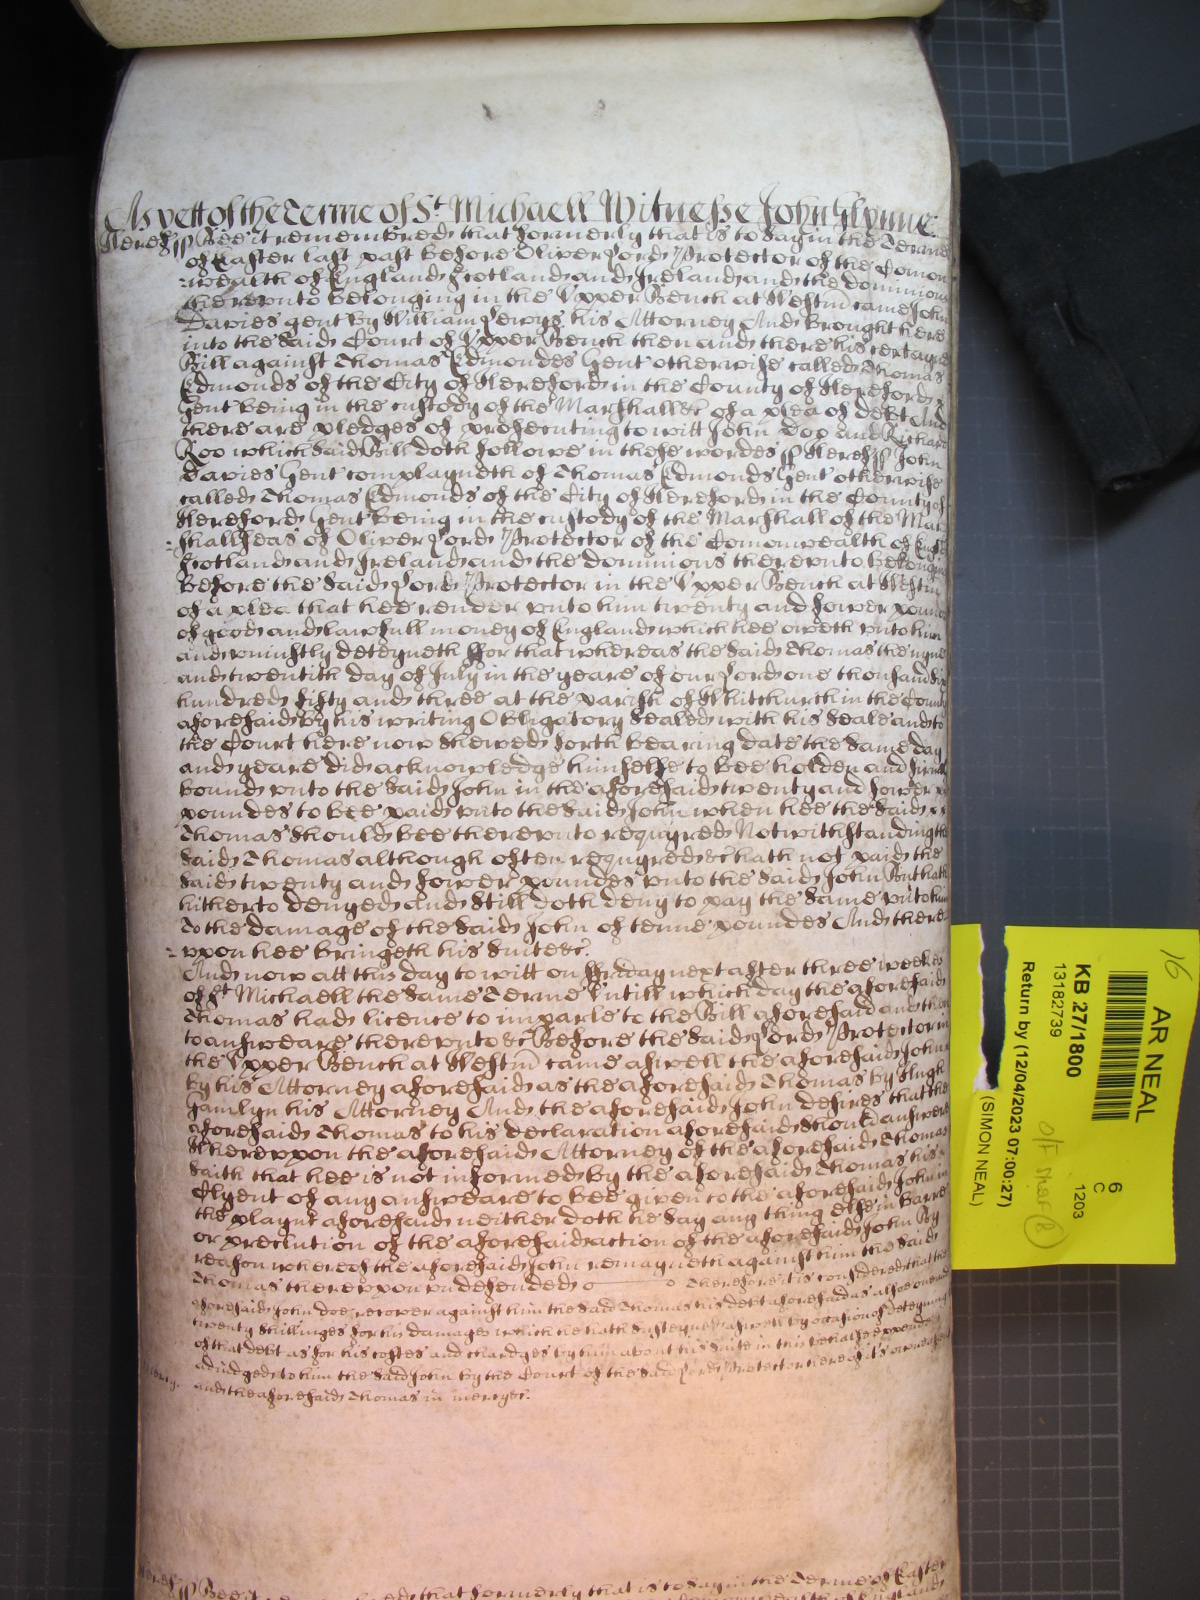 As yett of the Terme of St Michaell Witnesse John Glynne:
Heref ss Bee it remembred that formerly that is to say in the Terme
of Easter last past before Oliver Lord Protector of the Comon
=wealth of England Scotland and Ireland and the dominions
therevnto belonging in the Vpper Bench at Westm came John
Davies gent by William Lewys his Attorney And brought here
into the said Court of Vpper Bench then and there his certayne
Bill against Thomas Edmondes Gent otherwise called Thomas
Edmonds of the City of Hereford in the County of Hereford
Gent being in the custody of the Marshall &c of a plea of debt And
there are pledges of prosecuting to witt John Doo and Richard
Roo which said Bill doth followe in these wordes ss Heref ss John
Davies Gent complayneth of Thomas Edmonds Gent otherwise
called Thomas Edmonds of the City of Hereford in the County of
Hereford Gent being in the custody of the Marshall of the Mar
=shallseas of Oliver Lord Protector of the Comonwealth of Engl
Scotland and Ireland and the dominions therevnto belonging
before the said Lord Protector in the Vpper Bench at Westm
of a plea that hee render vnto him twenty and fower pound
of good and lawfull money of England which hee oweth vnto him
and vniustly deteyneth ffor that whereas the said Thomas the nyne
and twentith day of July in the yeare of our Lord one thousand six
hundred fifty and three at the parish of Whitchurch in the County
aforesaid by his writing Obligatory sealed with his seale and to
the Court here now shewed forth bearing date the same day
and yeare did acknowledge himselfe to bee holden and firmly
bound vnto the said John in the aforesaid twenty and fower
poundes to bee paid vnto the said John when hee the said
Thomas should bee therevnto requyred Notwithstanding the
said Thomas although often requyred &c hath not paid the
said twenty and fower poundes vnto the said John But hath
hitherto denyed and still doth deny to pay the same vnto him
To the damage of the said John of tenne poundes And there
=vpon hee bringeth his suite &c.
And now att this day to witt on ffriday next after three weekes
of St Michaell the same Terme Vntill which day the aforesaid
Thomas had licence to imparle to the Bill aforesaid and then
to answeare therevnto &c Before the said Lord Protector in
the Vpper Bench at Westm came aswell the aforesaid John
by his Attorney aforesaid as the aforesaid Thomas by Hugh
Gamlyn his Attorney And the aforesaid John desires that the
aforesaid Thomas to his declaration aforesaid should answere
Wherevpon the aforesaid Attorney of the aforesaid Thomas
saith that hee is not informed by the aforesaid Thomas his
Clyent of any answeare to bee given to the aforesaid John in
the playnt aforesaid neither doth he say any thing else in barre
or preclution of the aforesaid action of the aforesaid John By
reason whereof the aforesaid John remayneth against him the said
Thomas therevpon vndefended Therefore it is considered that the
aforesaid John doe recover against him the said Thomas his debt aforesaid as alsoe
twenty shillinges for his damages which he hath susteyned aswell by occasion of deteyning
of that debt as for his costes and chardges by him about his suite in this behalfe expended
adiudged to him the said John by the Court of the said Lord Protector here of it's owne assent
and the aforesaid Thomas in mercye.
mercy.
Heref ss Bee it remembred that formerly that is to say in the Terme of Easter
16
AR NEAL
KB 27/1800
13182739
Return by (12/04/2023 07:00:27)
(SIMON NEAL)
6
C
1203